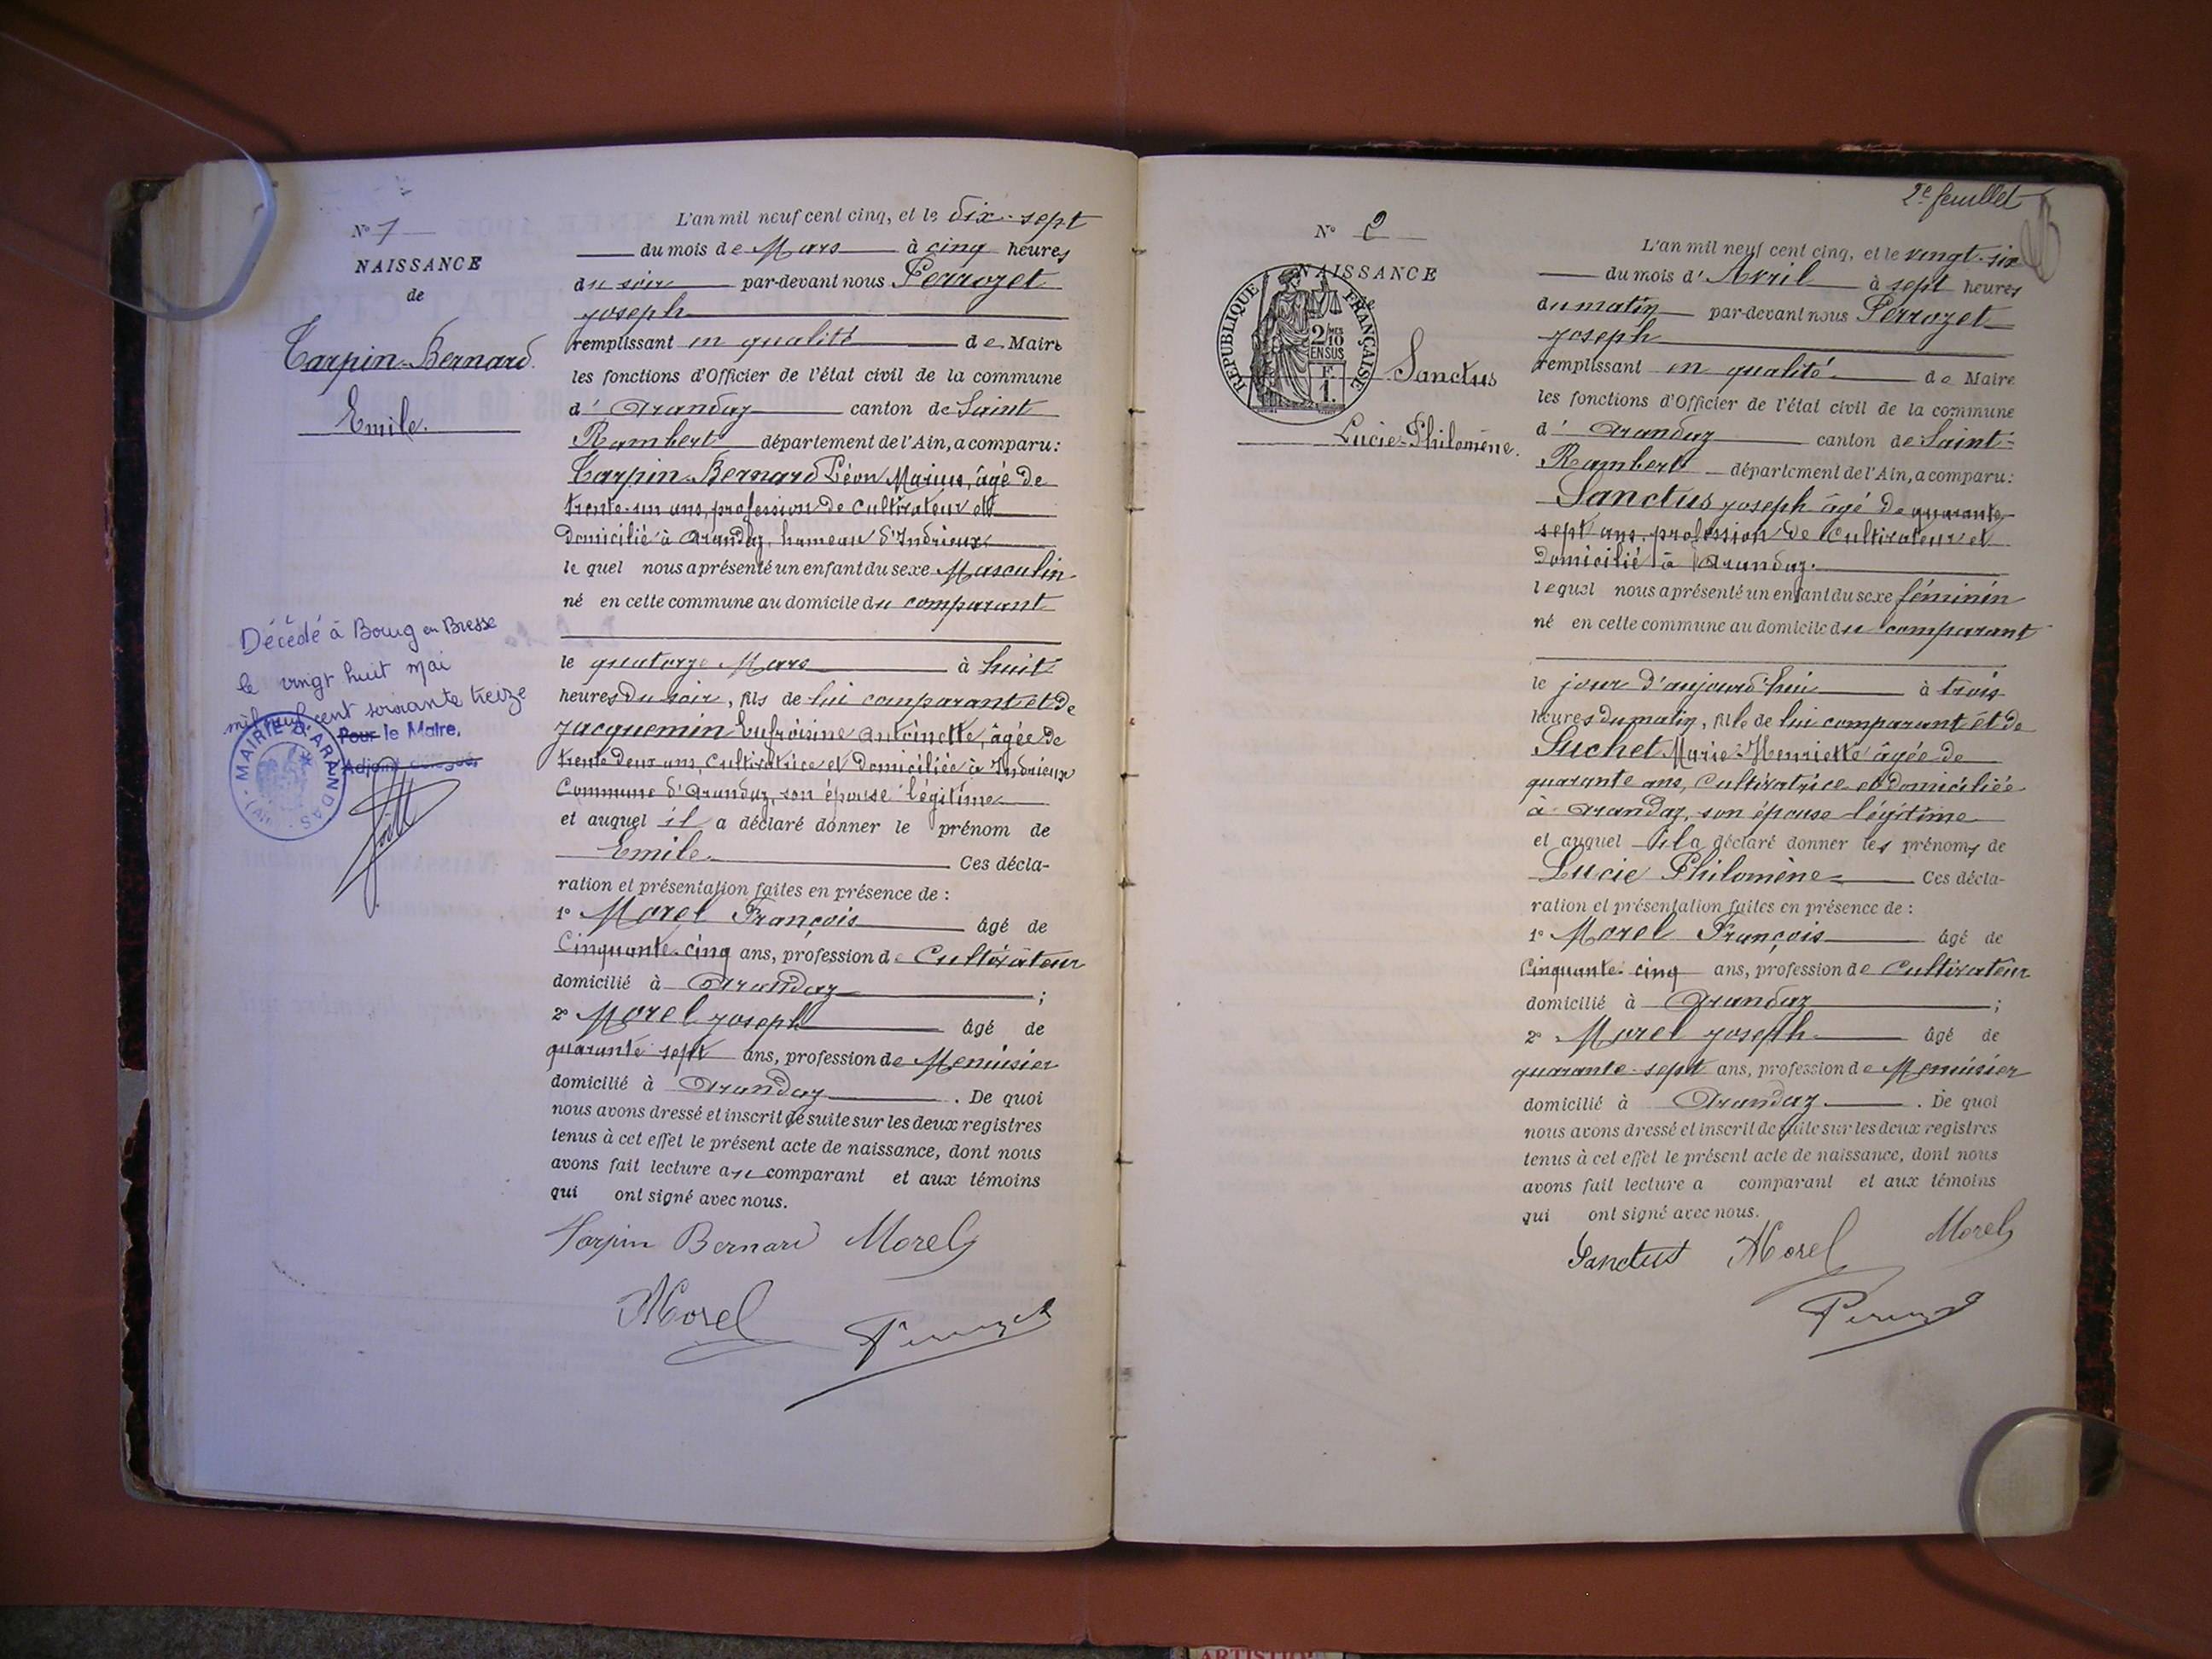 N° 1
NAISSANCE
de
Tarpin-Bernard
Emile.
Décédé à Bourg en Bresse
le vingt huit mai
mil neuf cent soixante treize
Pour le Maire,
Adjoint
MAIRIE D'ARANDAS
L'an mil neuf cent cinq, et le dix-sept
du mois de Mars à cinq heures
du soir par-devant nous Perrozet
joseph
remplissant en qualité de Maire
les fonctions d'Officier de l'état civil de la commune
d' Arandaz canton de Saint
Rambert département de l'Ain, a comparu:
Tarpin-Bernard Léon Marius, âgé de
trente-un ans, profession de Cultivateur et
domicilié à Arandaz, hameau d'Indrieux
le quel nous a présenté un enfant du sexe Masculin
né en cette commune au domicile du comparant
le quatorze Mars à huit
heures du soir, fils de lui comparant et de
Jacquemin Eufroisine Antoinette, âgée de
trente deux ans, Cultivatrice et domiciliée à Indrieux
Commune d'Arandaz, son épouse légitime
et auquel il a déclaré donner le prénom de
Emile. Ces décla-
ration et présentation faites en présence de :
1° Morel François âgé de
Cinquante-cinq ans, profession de Cultivateur
domicilié à Arandaz ;
2° Morel joseph âgé de
quarante sept ans, profession de Menuisier
domicilié à Arandaz . De quoi
nous avons dressé et inscrit de suite sur les deux registres
tenus à cet effet le présent acte de naissance, dont nous
avons fait lecture au comparant et aux témoins
qui ont signé avec nous.
Tarpin Bernard Morel
Morel
2e feuillet
N° 2
NAISSANCE
RÉPUBLIQUE FRANÇAISE
2/10 MES
EN SUS
F.
1.
Sanctus
Lucie-Philomène.
L'an mil neuf cent cinq, et le vingt-six
du mois d'Avril à sept heures
du matin par-devant nous Perrozet
joseph
remplissant en qualité de Maire
les fonctions d'Officier de l'état civil de la commune
d' Arandaz canton de Saint-
Rambert département de l'Ain, a comparu:
Sanctus joseph âgé de quarante
sept ans, profession de Cultivateur et
domicilié à Arandaz.
lequel nous a présenté un enfant du sexe féminin
né en cette commune au domicile du comparant
le jour d'aujourd'hui à trois
heures du matin, fille de lui comparant et de
Suchet Marie-Henriette âgée de
quarante ans, Cultivatrice et domiciliée
à Arandaz, son épouse légitime
et auquel il a déclaré donner les prénoms de
Lucie Philomène Ces décla-
ration et présentation faites en présence de :
1° Morel François âgé de
Cinquante-cinq ans, profession de Cultivateur
domicilié à Arandaz ;
2° Morel joseph âgé de
quarante-sept ans, profession de Menuisier
domicilié à Arandaz . De quoi
nous avons dressé et inscrit de suite sur les deux registres
tenus à cet effet le présent acte de naissance, dont nous
avons fait lecture a comparant et aux témoins
qui ont signé avec nous.
Sanctus Morel Morel
ARTISTIQUE